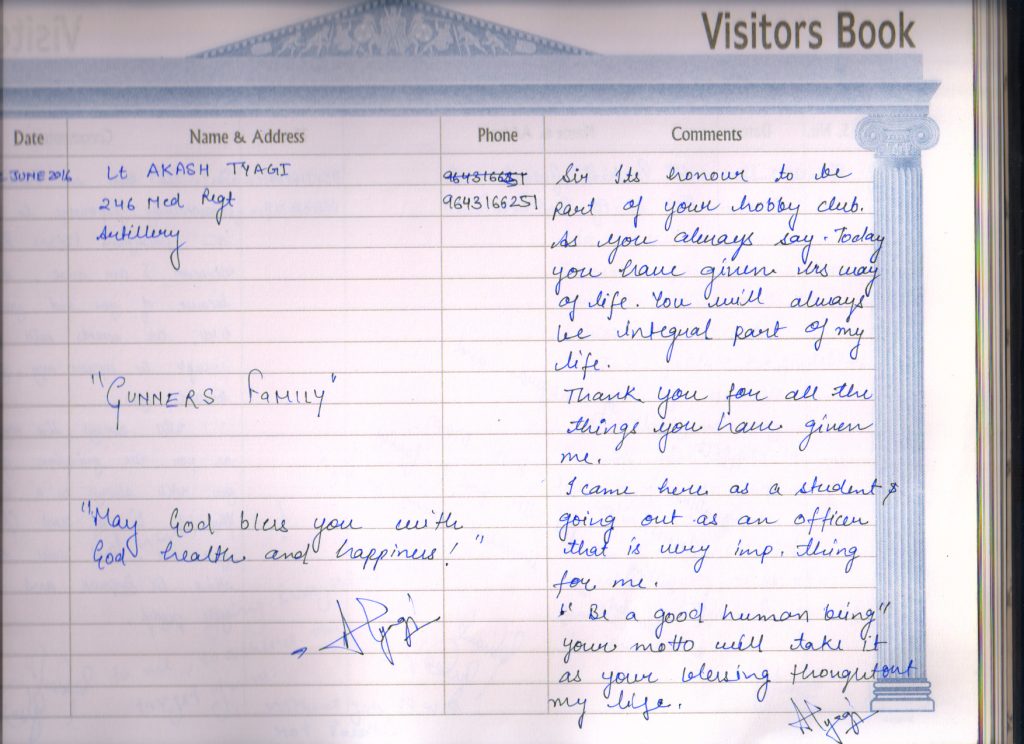 Visitors Book
Date Name & Address Phone Comments
JUNE 2016 Lt AKASH TYAGI Sir Its honour to be
246 Med Regt 9643166251 part of your hobby club.
Artillery As you always say. Today
you have given us way
of life. You will always
be integral part of my
life.
"GUNNERS FAMILY" Thank you for all the
things you have given
me.
I came here as a student &
"May God bless you with going out as an officer
God health and happiness!" that is very imp. thing
for me.
"Be a good human being"
your motto will take it
as your blessing thoughtout
my life.